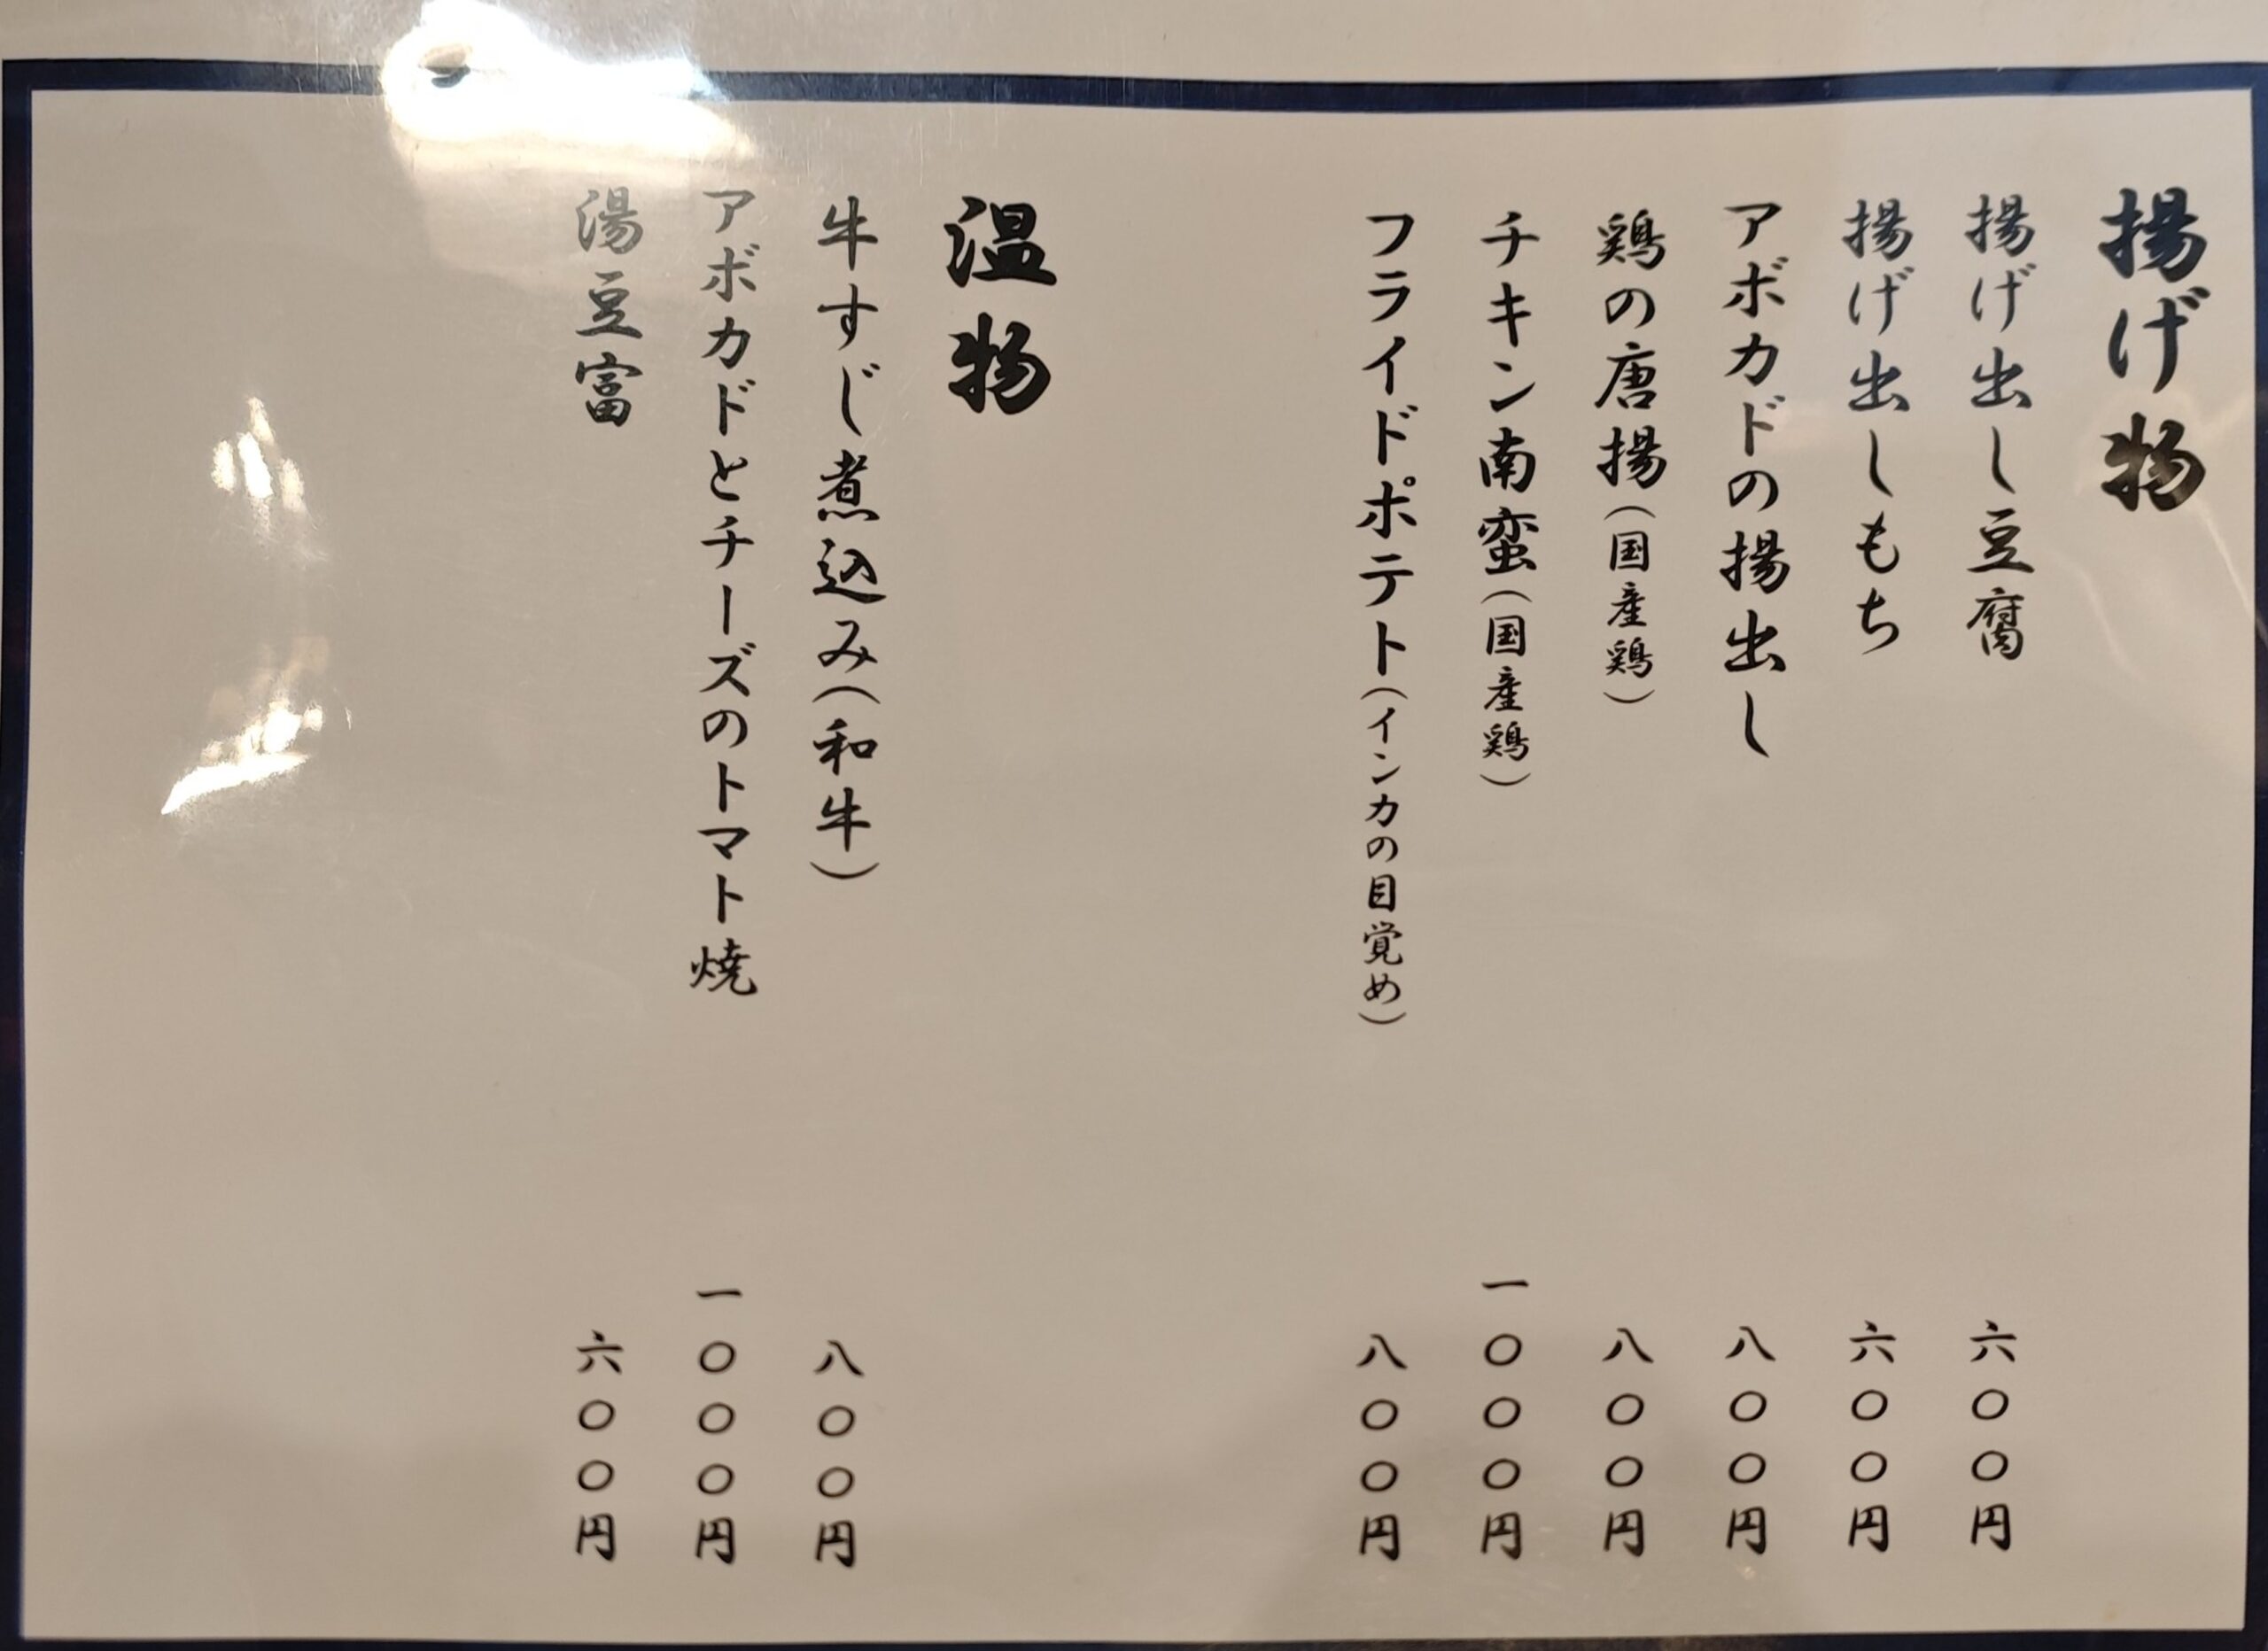 揚げ物
揚げ出し豆腐 六〇〇円
揚げ出しもち 六〇〇円
アボカドの揚出し 八〇〇円
鶏の唐揚（国産鶏） 八〇〇円
チキン南蛮（国産鶏） 一〇〇〇円
フライドポテト（インカの目覚め） 八〇〇円
温物
牛すじ煮込み（和牛） 八〇〇円
アボカドとチーズのトマト焼 一〇〇〇円
湯豆富 六〇〇円